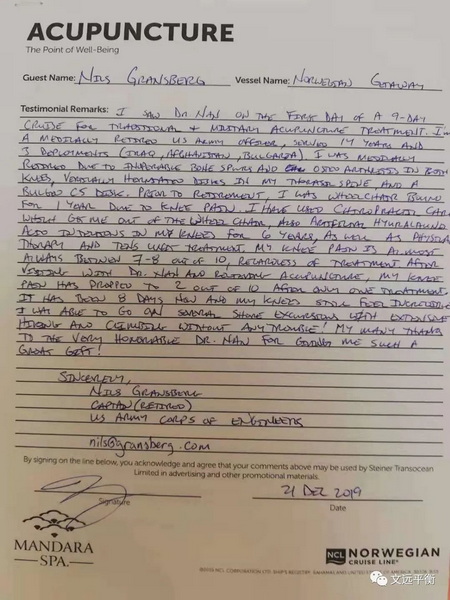 ACUPUNCTURE
The Point of Well-Being
Guest Name: NILS GRANSBERG Vessel Name: NORWEGIAN GETAWAY
Testimonial Remarks: I SAW DR NAN ON THE FIRST DAY OF A 9-DAY
CRUISE FOR TRADITIONAL + MILITARY ACUPUNCTURE TREATMENT. I'M
A MEDICALLY RETIRED US ARMY OFFICER, SERVED 14 YEARS AND
3 DEPLOYMENTS (IRAQ, AFGHANISTAN, BULGARIA). I WAS MEDICALLY
RETIRED DUE TO INOPERABLE BONE SPURS AND OSTEO ARTHRITIS IN BOTH
KNEES, HERNIATED DISKS IN MY THORACIC SPINE, AND A
BULGED C5 DISK. PRIOR TO RETIREMENT, I WAS WHEELCHAIR BOUND
FOR 1 YEAR DUE TO KNEE PAIN. I HAVE USED CHIROPRACTIC CARE
WHICH GOT ME OUT OF THE WHEEL CHAIR, ALSO ARTIFICIAL
ALSO INJECTIONS IN MY KNEES FOR 6 YEARS, AS WELL AS PHYSICAL
THERAPY AND TENS UNIT TREATMENT. MY KNEE PAIN IS ALMOST
ALWAYS BETWEEN 7-8 OUT OF 10, REGARDLESS OF TREATMENT. AFTER
VISITING WITH DR. NAN AND RECEIVING ACUPUNCTURE, MY KNEE
PAIN HAS DROPPED TO 2 OUT OF 10 AFTER ONLY ONE TREATMENT.
IT HAS BEEN 8 DAYS NOW AND MY KNEES STILL FEEL INCREDIBLE
I WAS ABLE TO GO ON SEVERAL SHORE EXCURSIONS WITH EXTENSIVE
HIKING AND CLIMBING WITHOUT ANY TROUBLE! MY MANY THANKS
TO THE VERY HONORABLE DR. NAN FOR GIVING ME SUCH A
GREAT GIFT!
SINCERELY,
NILS GRANSBERG
CAPTAIN (RETIRED)
US ARMY CORPS OF ENGINEERS
nils@gransberg.com
By signing on the line below, you acknowledge and agree that your comments above may be used by Steiner Transocean
Limited in advertising and other promotional materials.
21 DEC 2019
Signature Date
MANDARA
SPA
NCL NORWEGIAN
CRUISE LINE
文远平衡